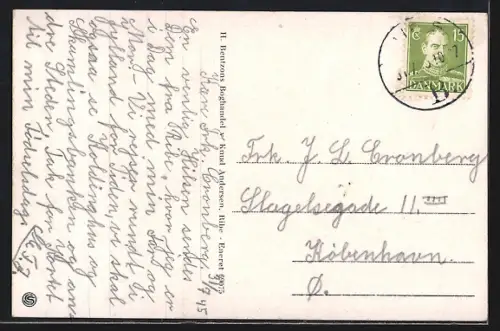 Kære Frk. Cronberg. 31/7 45
En venlig Hilsen sendes
Dem fra Ribe, hvor jeg er
i Dag med min Far og
Mor. Vi rejser rundt i
Jylland for Tiden, vi skal
ogsaa se Koldinghus og
Skamlingsbanken og andre
Steder. Tak for Kortet
til min Fødselsdag.
H. Bentzons Boghandel v/ Knud Andersen, Ribe - Eneret
15
DANMARK
Frk. J. L. Cronberg
Slagelsegade 11 III
København
Ø.